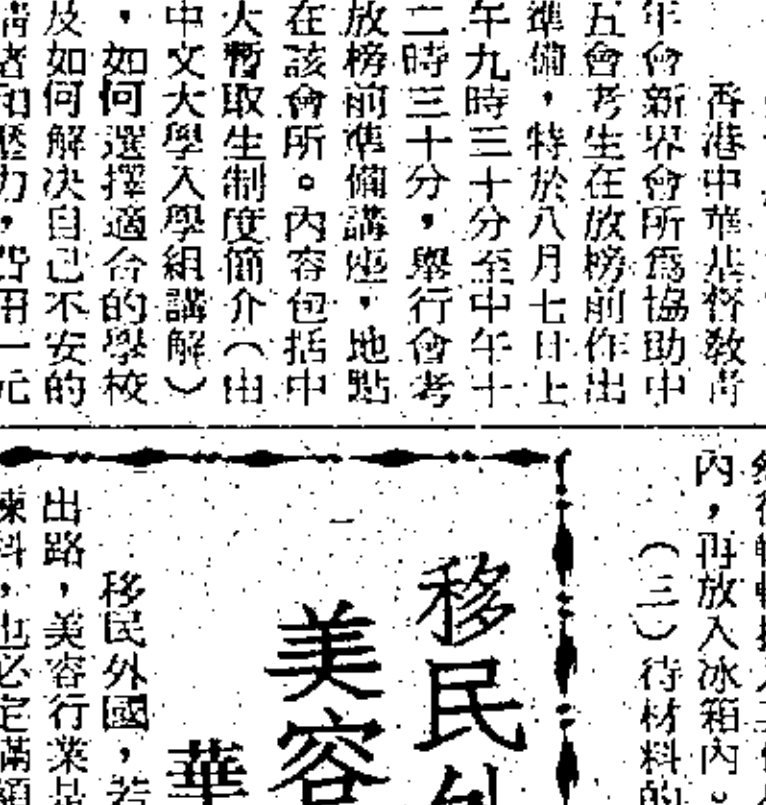 香港中華基督教青
年會新界會所爲協助中
五會考生在放榜前作出
準備，特於八月七日上
午九時三十分至中午十
二時三十分，舉行會考
放榜前準備講座，地點
在該會所。內容包括中
大暫取生制度簡介（由
中文大學入學組講解）
，如何選擇適合的學校
及如何解决自己不安的
情緒和壓力，費用一元
內，再放入冰箱內。
（三）待材料的
移民
美容
華
移民外國，若
出路，美容行業是